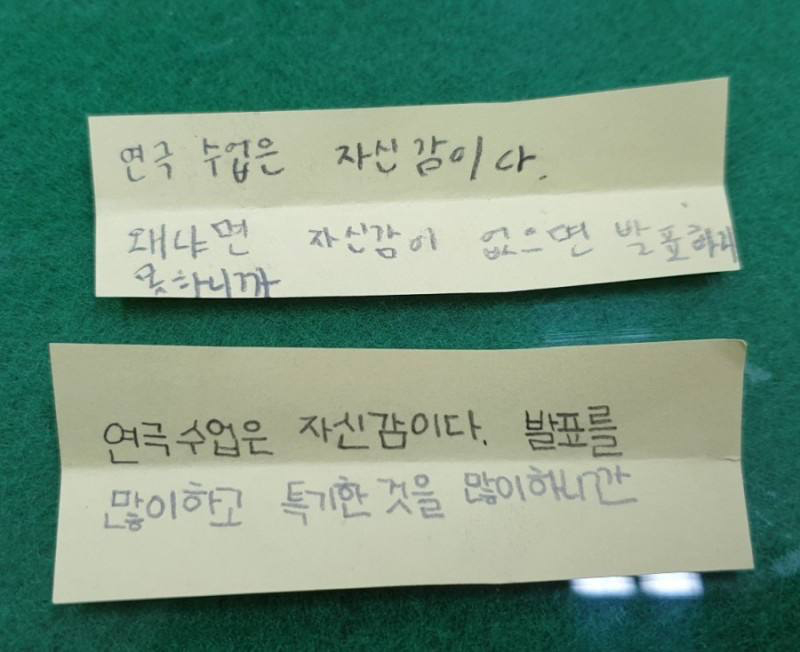 연극 수업은 자신감이다.
왜냐면 자신감이 없으면 발표하지
못하니까
연극 수업은 자신감이다. 발표를
많이하고 특기한 것을 많이하니깐